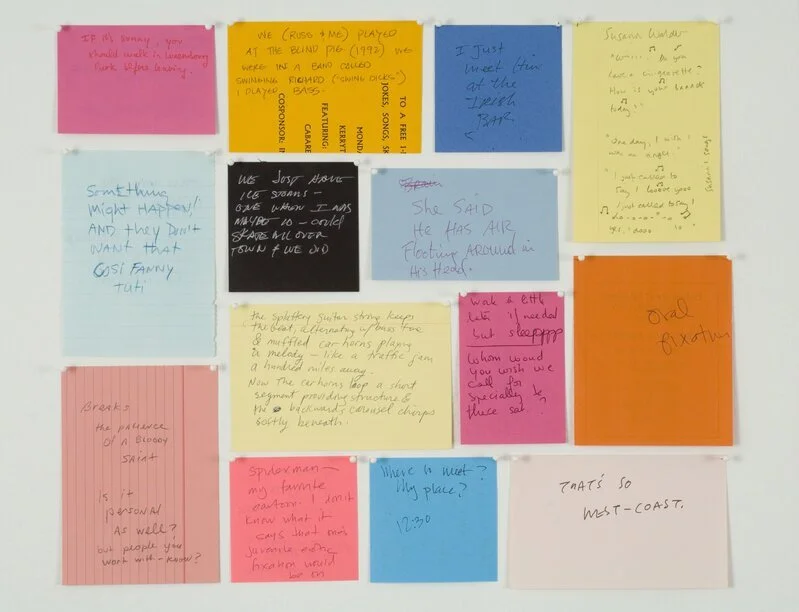 If it's sunny, you
should walk in Luxembourg
Park before leaving.
WE (RUSS & ME) PLAYED
AT THE BLIND PIG (1992) WE
WERE IN A BAND CALLED
SWINGING RICHARD ("SWING DICKS")
I PLAYED BASS.
TO A FREE 1-
JOKES, SONGS, SK
MONDA
KERRYT
FEATURING:
CABARE
COSPONSOR: IN
I Just
meet him
at the
IRISH
BAR.
Do you
have a cigarette?
How is your
today?
"One day, I wish I
was an angel"
"I just called to
Say I loove you
I just called to say I
Something
Might HAPPEN!
AND they DON'T
WANT that
COSI FANNY
TUTI
WE JUST HAVE
ICE STORMS –
ONE WHEN I WAS
MAYBE 10 – COULD
SKATE ALL OVER
TOWN & WE DID
She SAID
HE HAS AIR
Floating AROUND in
His Head.
the spluttery guitar string keeps
the beat, alternating w/ bass tone
& muffled car horns playing
a melody – like a traffic jam
a hundred miles away.
Now the car horns loop a short
segment providing structure &
the backwards carousel chirps
softly beneath.
Work a little
late if needed
but sleepppp
Whom would
you wish we
call for
specially to
these set.?
oral
fixation
Breaks
the patience
of a Bloody
SAINT
Is it
personal
AS well?
but people you
work with – know?
Spiderman –
my favorite
cartoon. I don't
know what it
says that one's
juvenile
fixation would
be on
Where to meet?
My place?
12:30
THAT'S SO
WEST-COAST.